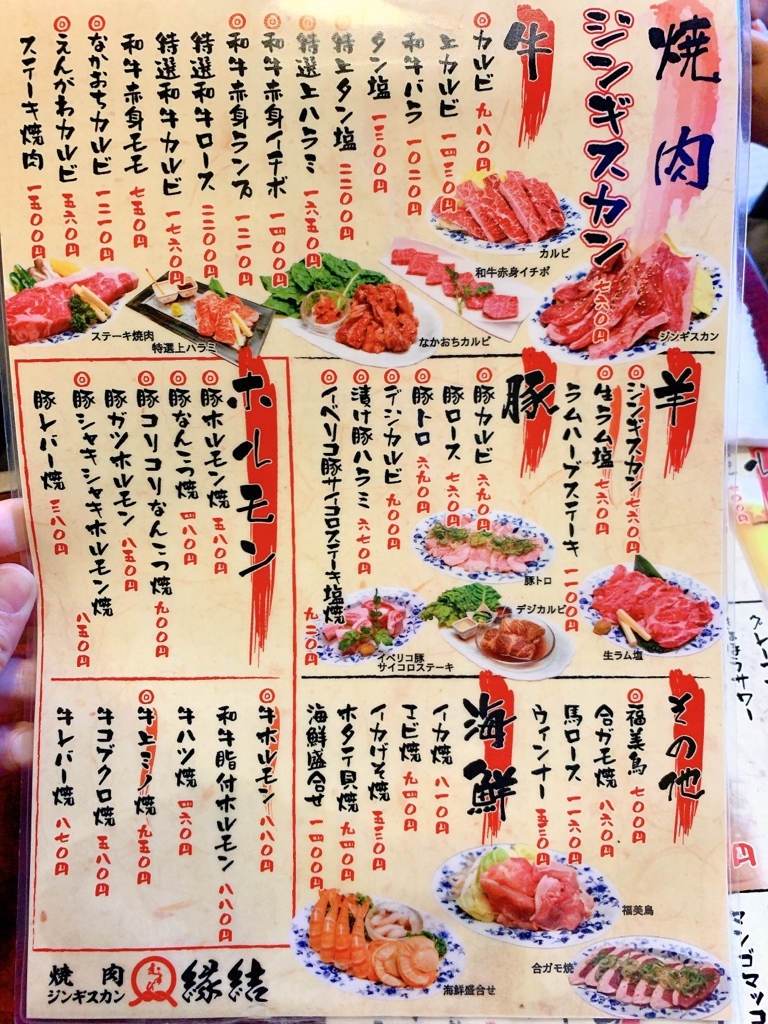 焼肉
ジンギスカン
七六〇円
牛
◎カルビ 九八〇円
上カルビ 一四三〇円
和牛バラ 一〇二〇円
タン塩 一三〇〇円
特上タン塩 二二〇〇円
◎特選上ハラミ 一六五〇円
◎和牛赤身イチボ 一四〇〇円
◎和牛赤身ランプ 一二一〇円
特選和牛ロース 二二〇〇円
特選和牛カルビ 一七六〇円
和牛赤身モモ 七五〇円
◎なかおちカルビ 一二一〇円
◎えんがわカルビ 五六〇円
ステーキ焼肉 一五〇〇円
カルビ
和牛赤身イチボ
ジンギスカン
なかおちカルビ
特選上ハラミ
ステーキ焼肉
羊
◎ジンギスカン 七六〇円
◎生ラム塩 七六〇円
ラムハーブステーキ 一一〇〇円
生ラム塩
豚
◎豚カルビ 六九〇円
豚ロース 七六〇円
◎豚トロ 六九〇円
◎デジカルビ 九〇〇円
◎漬け豚ハラミ 六七〇円
◎イベリコ豚サイコロステーキ塩焼 九二〇円
豚トロ
デジカルビ
イベリコ豚
サイコロステーキ
ホルモン
◎豚ホルモン焼 五八〇円
◎豚なんこつ焼 四八〇円
◎豚コリコリなんこつ焼 九〇〇円
豚ガツホルモン 八五〇円
◎豚シャキシャキホルモン焼 八五〇円
豚レバー焼 三八〇円
◎牛ホルモン 八八〇円
和牛脂付ホルモン 八八〇円
牛ハツ焼 四六〇円
◎牛上ミノ焼 九五〇円
牛コブクロ焼 五八〇円
牛レバー焼 八七〇円
その他
◎福美鳥 七〇〇円
合ガモ焼 八六〇円
馬ロース 一一六〇円
ウィンナー 五三〇円
海鮮
イカ焼 八一〇円
エビ焼 九四〇円
イカげそ焼 五三〇円
ホタテ貝焼 九四〇円
海鮮盛合せ 一四〇〇円
福美鳥
合ガモ焼
海鮮盛合せ
焼肉
ジンギスカン
縁結
マンゴマッコ